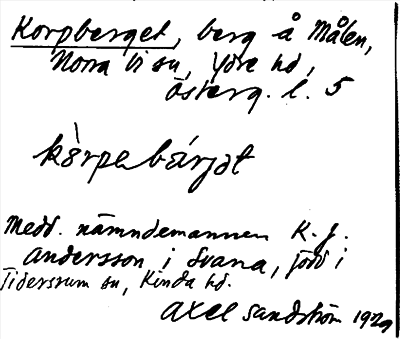 Korpberget, berg å Målen,
Norra Vi sn, Ydre hd,
Österg. l. 5
kò̀rpebárjət
Medd. nämndemannen K. J.
Andersson i Svana, född i
Tidersrum sn, Kinda hd.
Axel Sandström 1929